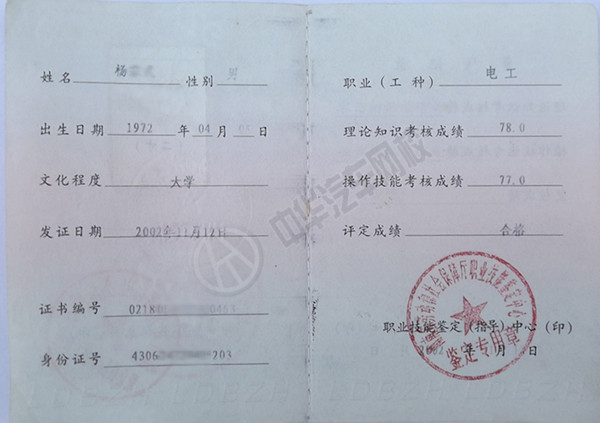 姓名 杨 性别 男
出生日期 1972 年 04 月 日
文化程度 大学
发证日期 2002年11月12日
证书编号 02180 0463
身份证号 4306 203
职业(工 种) 电工
理论知识考核成绩 78.0
操作技能考核成绩 77.0
评定成绩 合格
职业技能鉴定(指导)中心(印)
2002 年 月 日
鉴定专用章
中华汽车网校